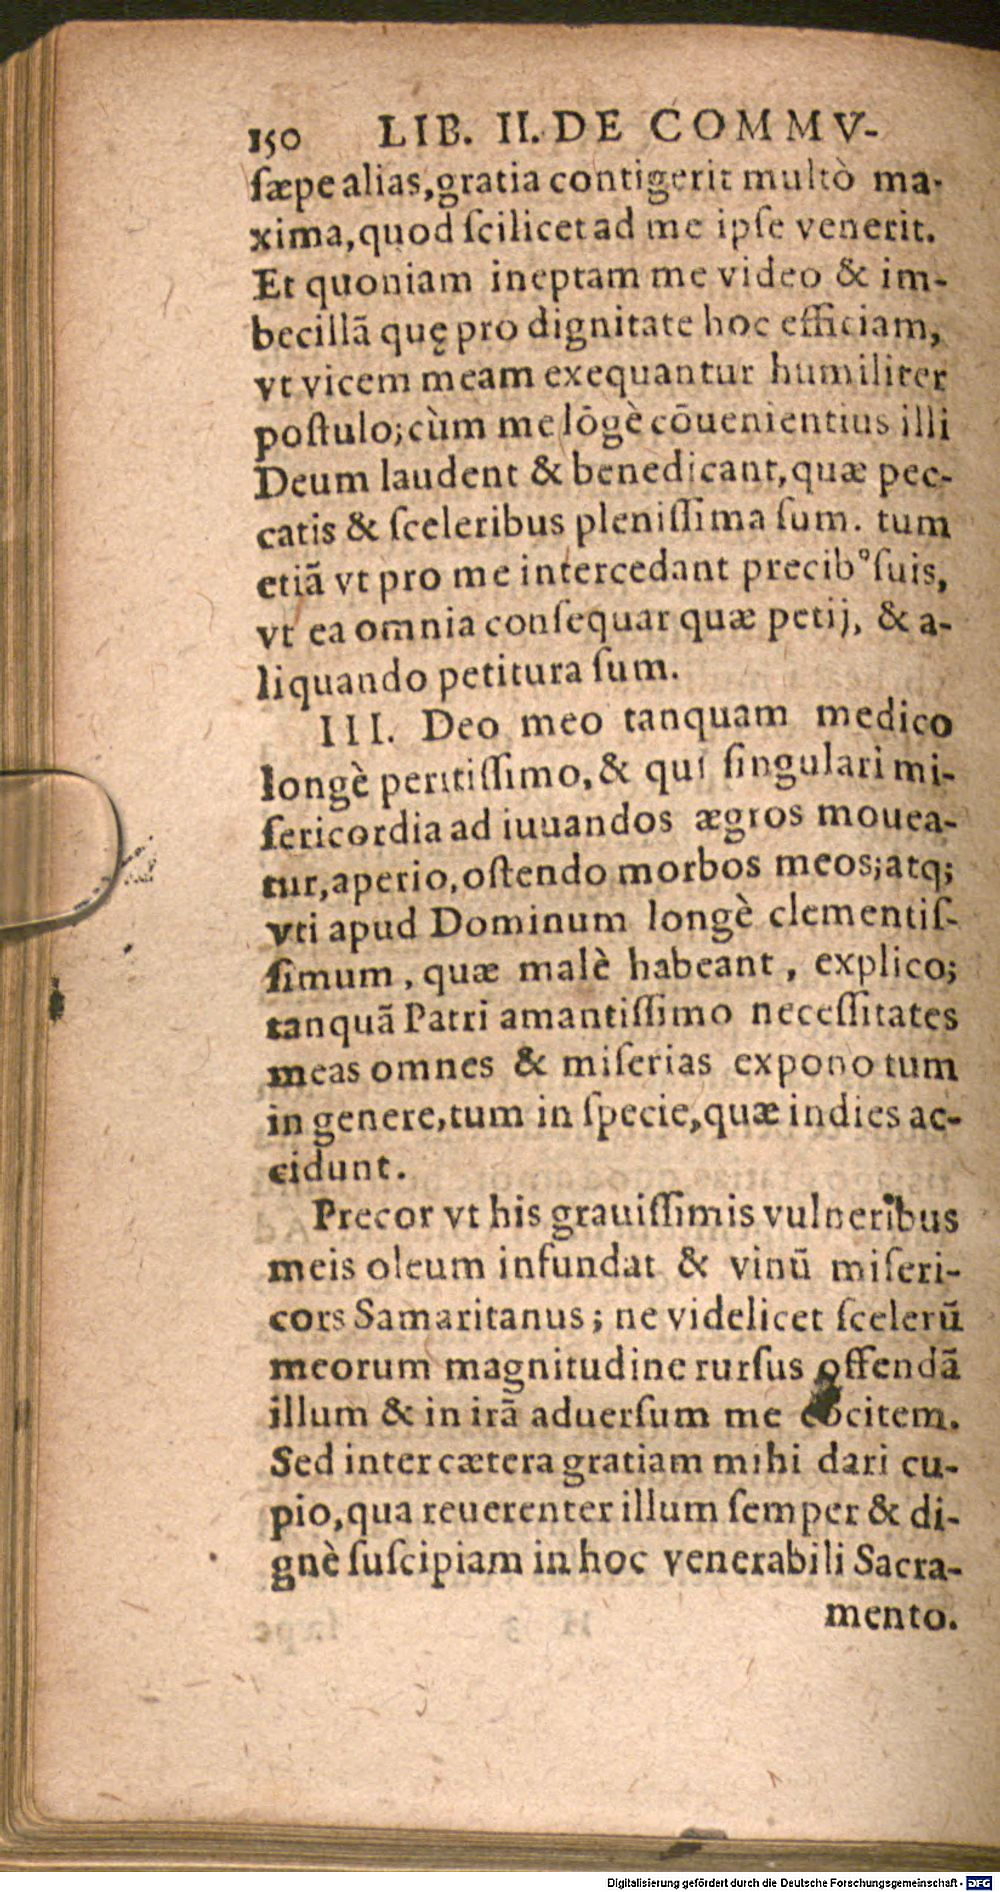 150 LIB. II. DE COMMV-
ſæpe alias, gratia contigerit multò ma-
xima, quod ſcilicet ad me ipſe venerit.
Et quoniam ineptam me video & im-
becillā quę pro dignitate hoc efficiam,
vt vicem meam exequantur humiliter
poſtulo; cùm me lōgè cōuenientius illi
Deum laudent & benedicant, quæ pec-
catis & ſceleribus pleniſſima ſum. tum
etiā vt pro me intercedant precibꝰ ſuis,
vt ea omnia conſequar quæ petij, & a-
liquando petitura ſum.
III. Deo meo tanquam medico
longè peritiſſimo, & qui ſingulari mi-
ſericordia ad iuuandos ægros mouea-
tur, aperio, oſtendo morbos meos; atq;
vti apud Dominum longè clementiſ-
ſimum, quæ malè habeant, explico;
tanquā Patri amantiſſimo neceſſitates
meas omnes & miſerias expono tum
in genere, tum in ſpecie, quæ indies ac-
cidunt.
Precor vt his grauiſſimis vulneribus
meis oleum infundat & vinū miſeri-
cors Samaritanus; ne videlicet ſcelerū
meorum magnitudine rurſus offendā
illum & in irā aduerſum me cōcitem.
Sed inter cætera gratiam mihi dari cu-
pio, qua reuerenter illum ſemper & di-
gnè ſuſcipiam in hoc venerabili Sacra-
mento.
Digitalisierung gefördert durch die Deutsche Forschungsgemeinschaft - DFG